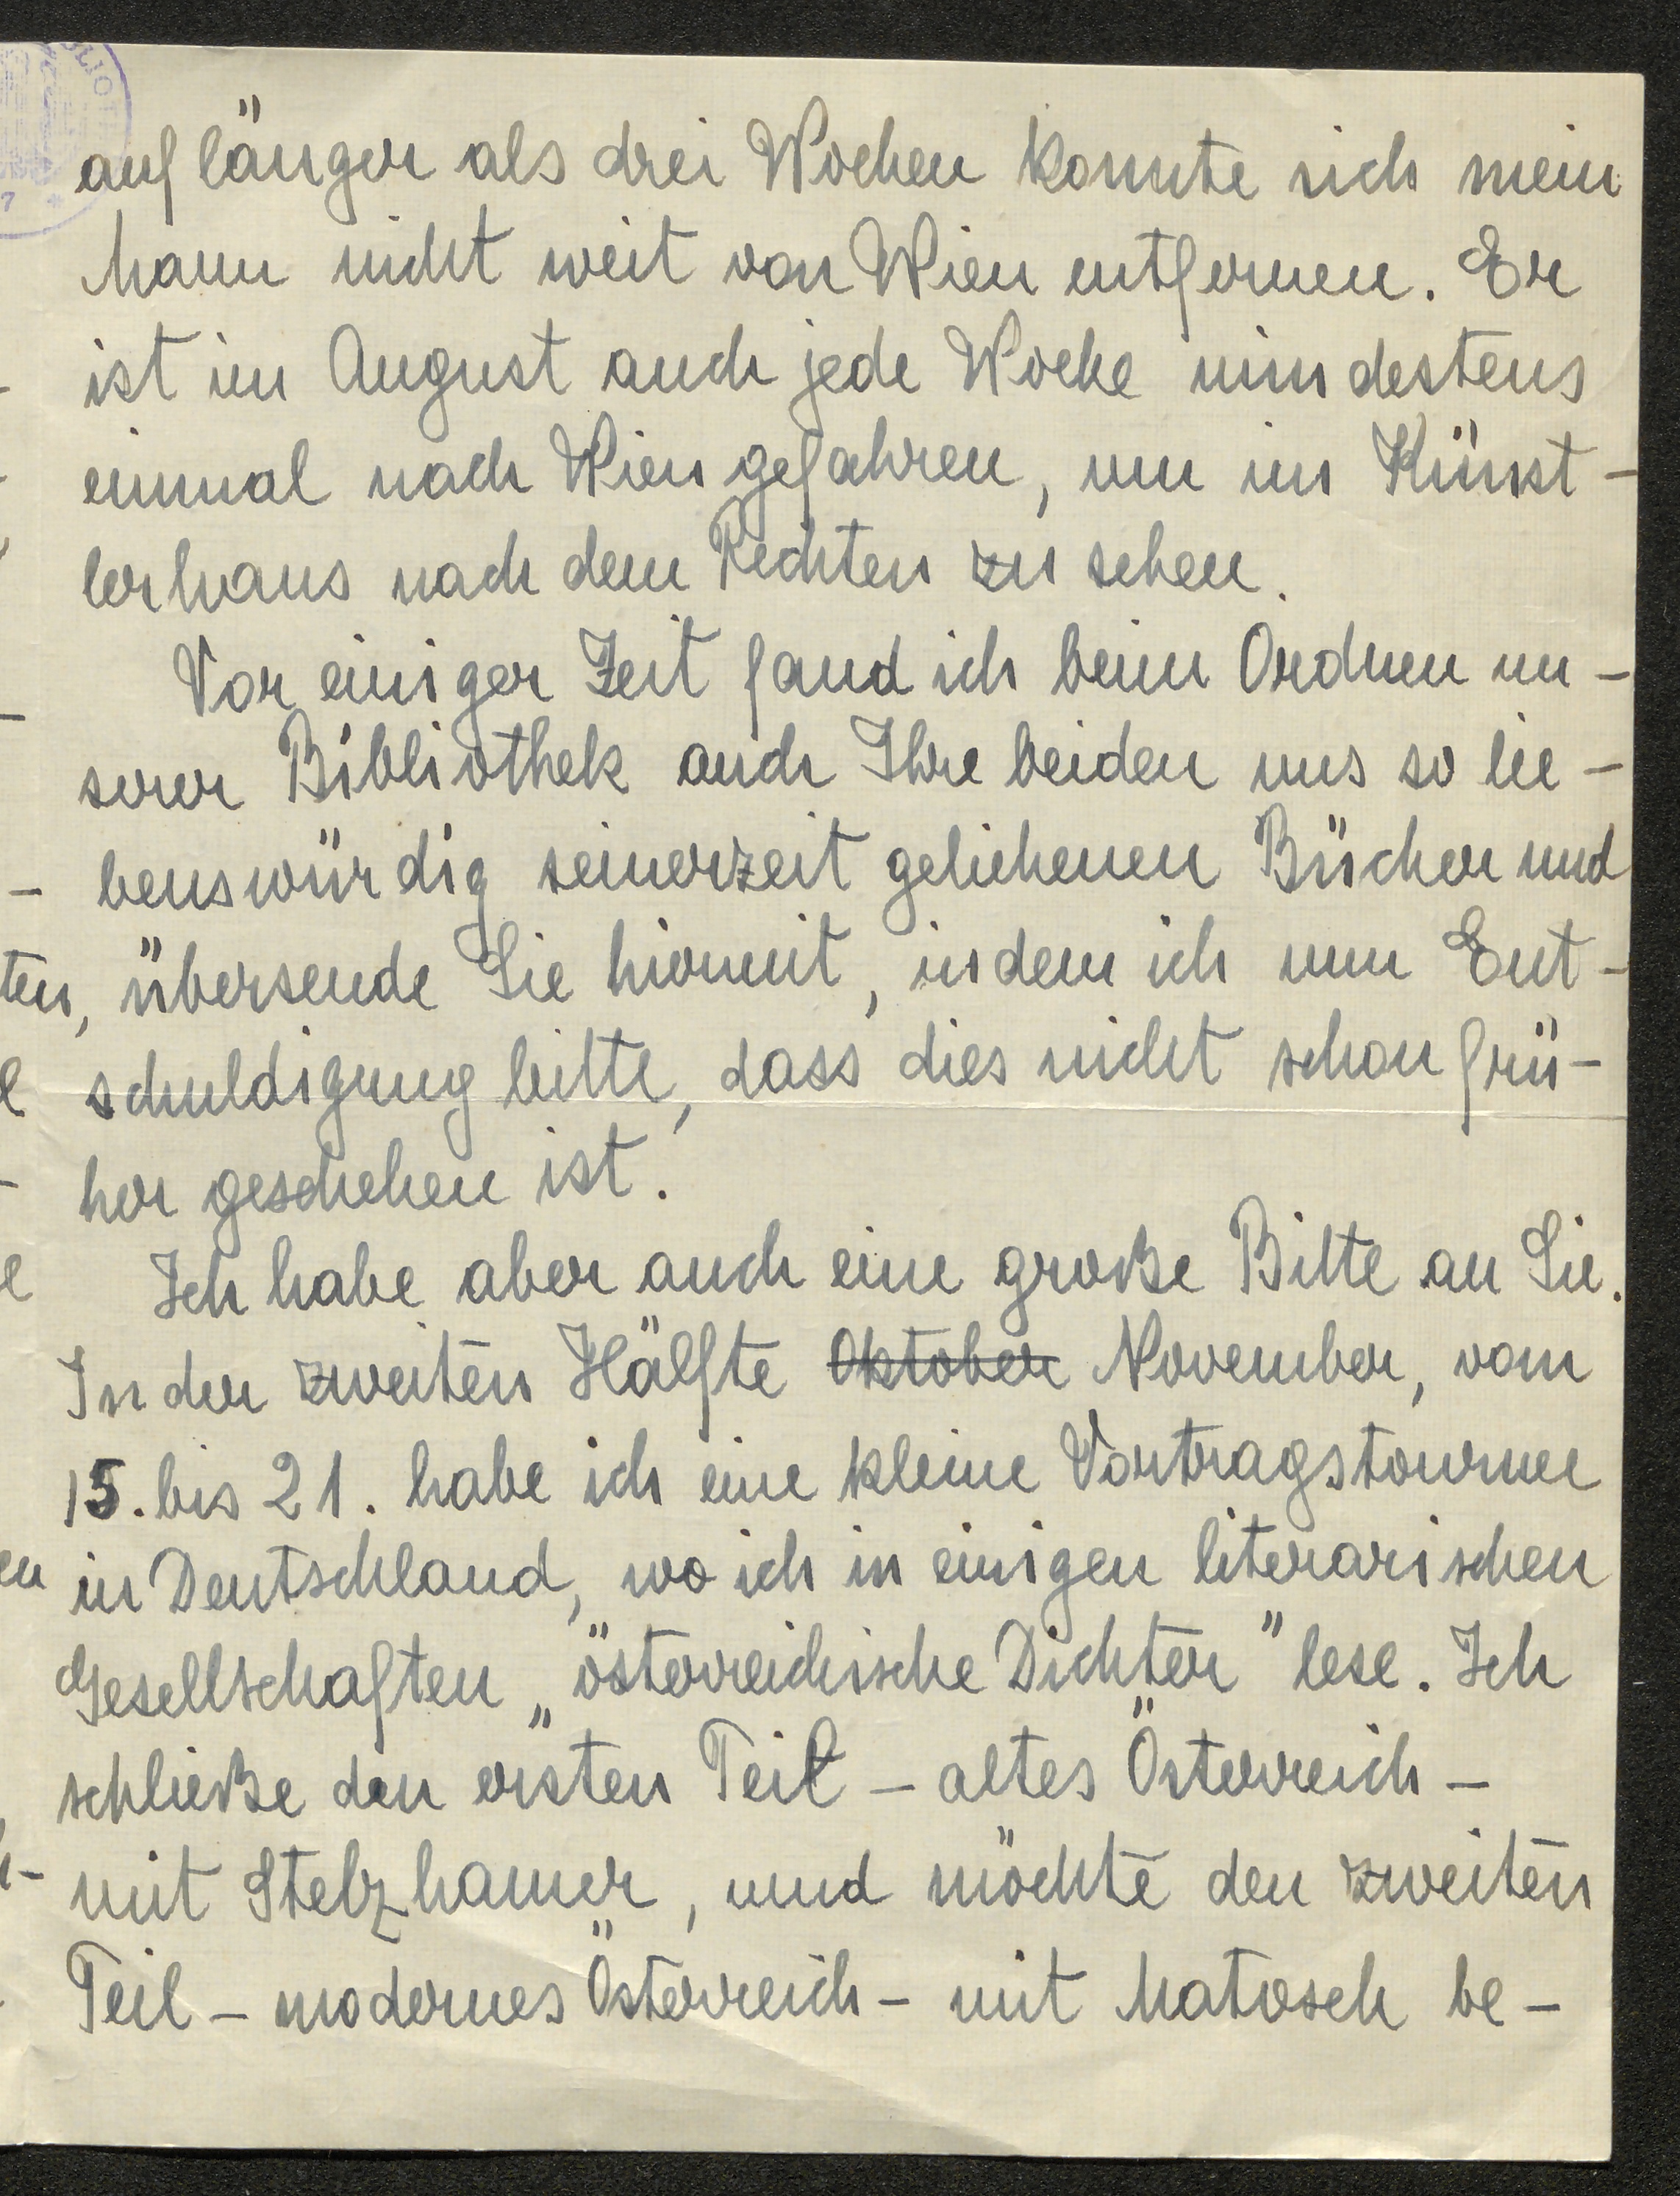 auf länger als drei Wochen konnte sich mein
Mann nicht weit von Wien entfernen. Er
ist im August auch jede Woche mindestens
einmal nach Wien gefahren, um im Künst-
lerhaus nach dem Rechten zu sehen.
Vor einiger Zeit fand ich beim Ordnen un-
serer Bibliothek auch Ihre beiden uns so lie-
benswürdig seinerzeit geliehenen Bücher und
übersende Sie hiermit, indem ich um Ent-
schuldigung bitte, dass dies nicht schon frü-
her geschehen ist.
Ich habe aber auch eine große Bitte an Sie.
In der zweiten Hälfte Oktober November, vom
15. bis 21. habe ich eine kleine Vortragstournee
in Deutschland, wo ich in einigen literarischen
Gesellschaften „österreichische Dichter" lese. Ich
schließe den ersten Teil – altes Österreich –
mit Stelzhamer, und möchte den zweiten
Teil – modernes Österreich – mit Matosch be-